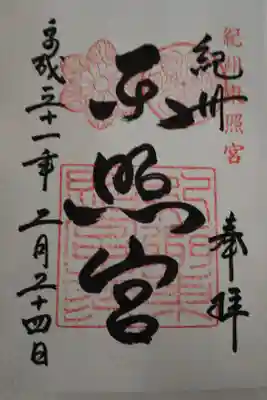 紀州東照宮
紀州
奉拝
東照宮
平成三十一年二月二十四日